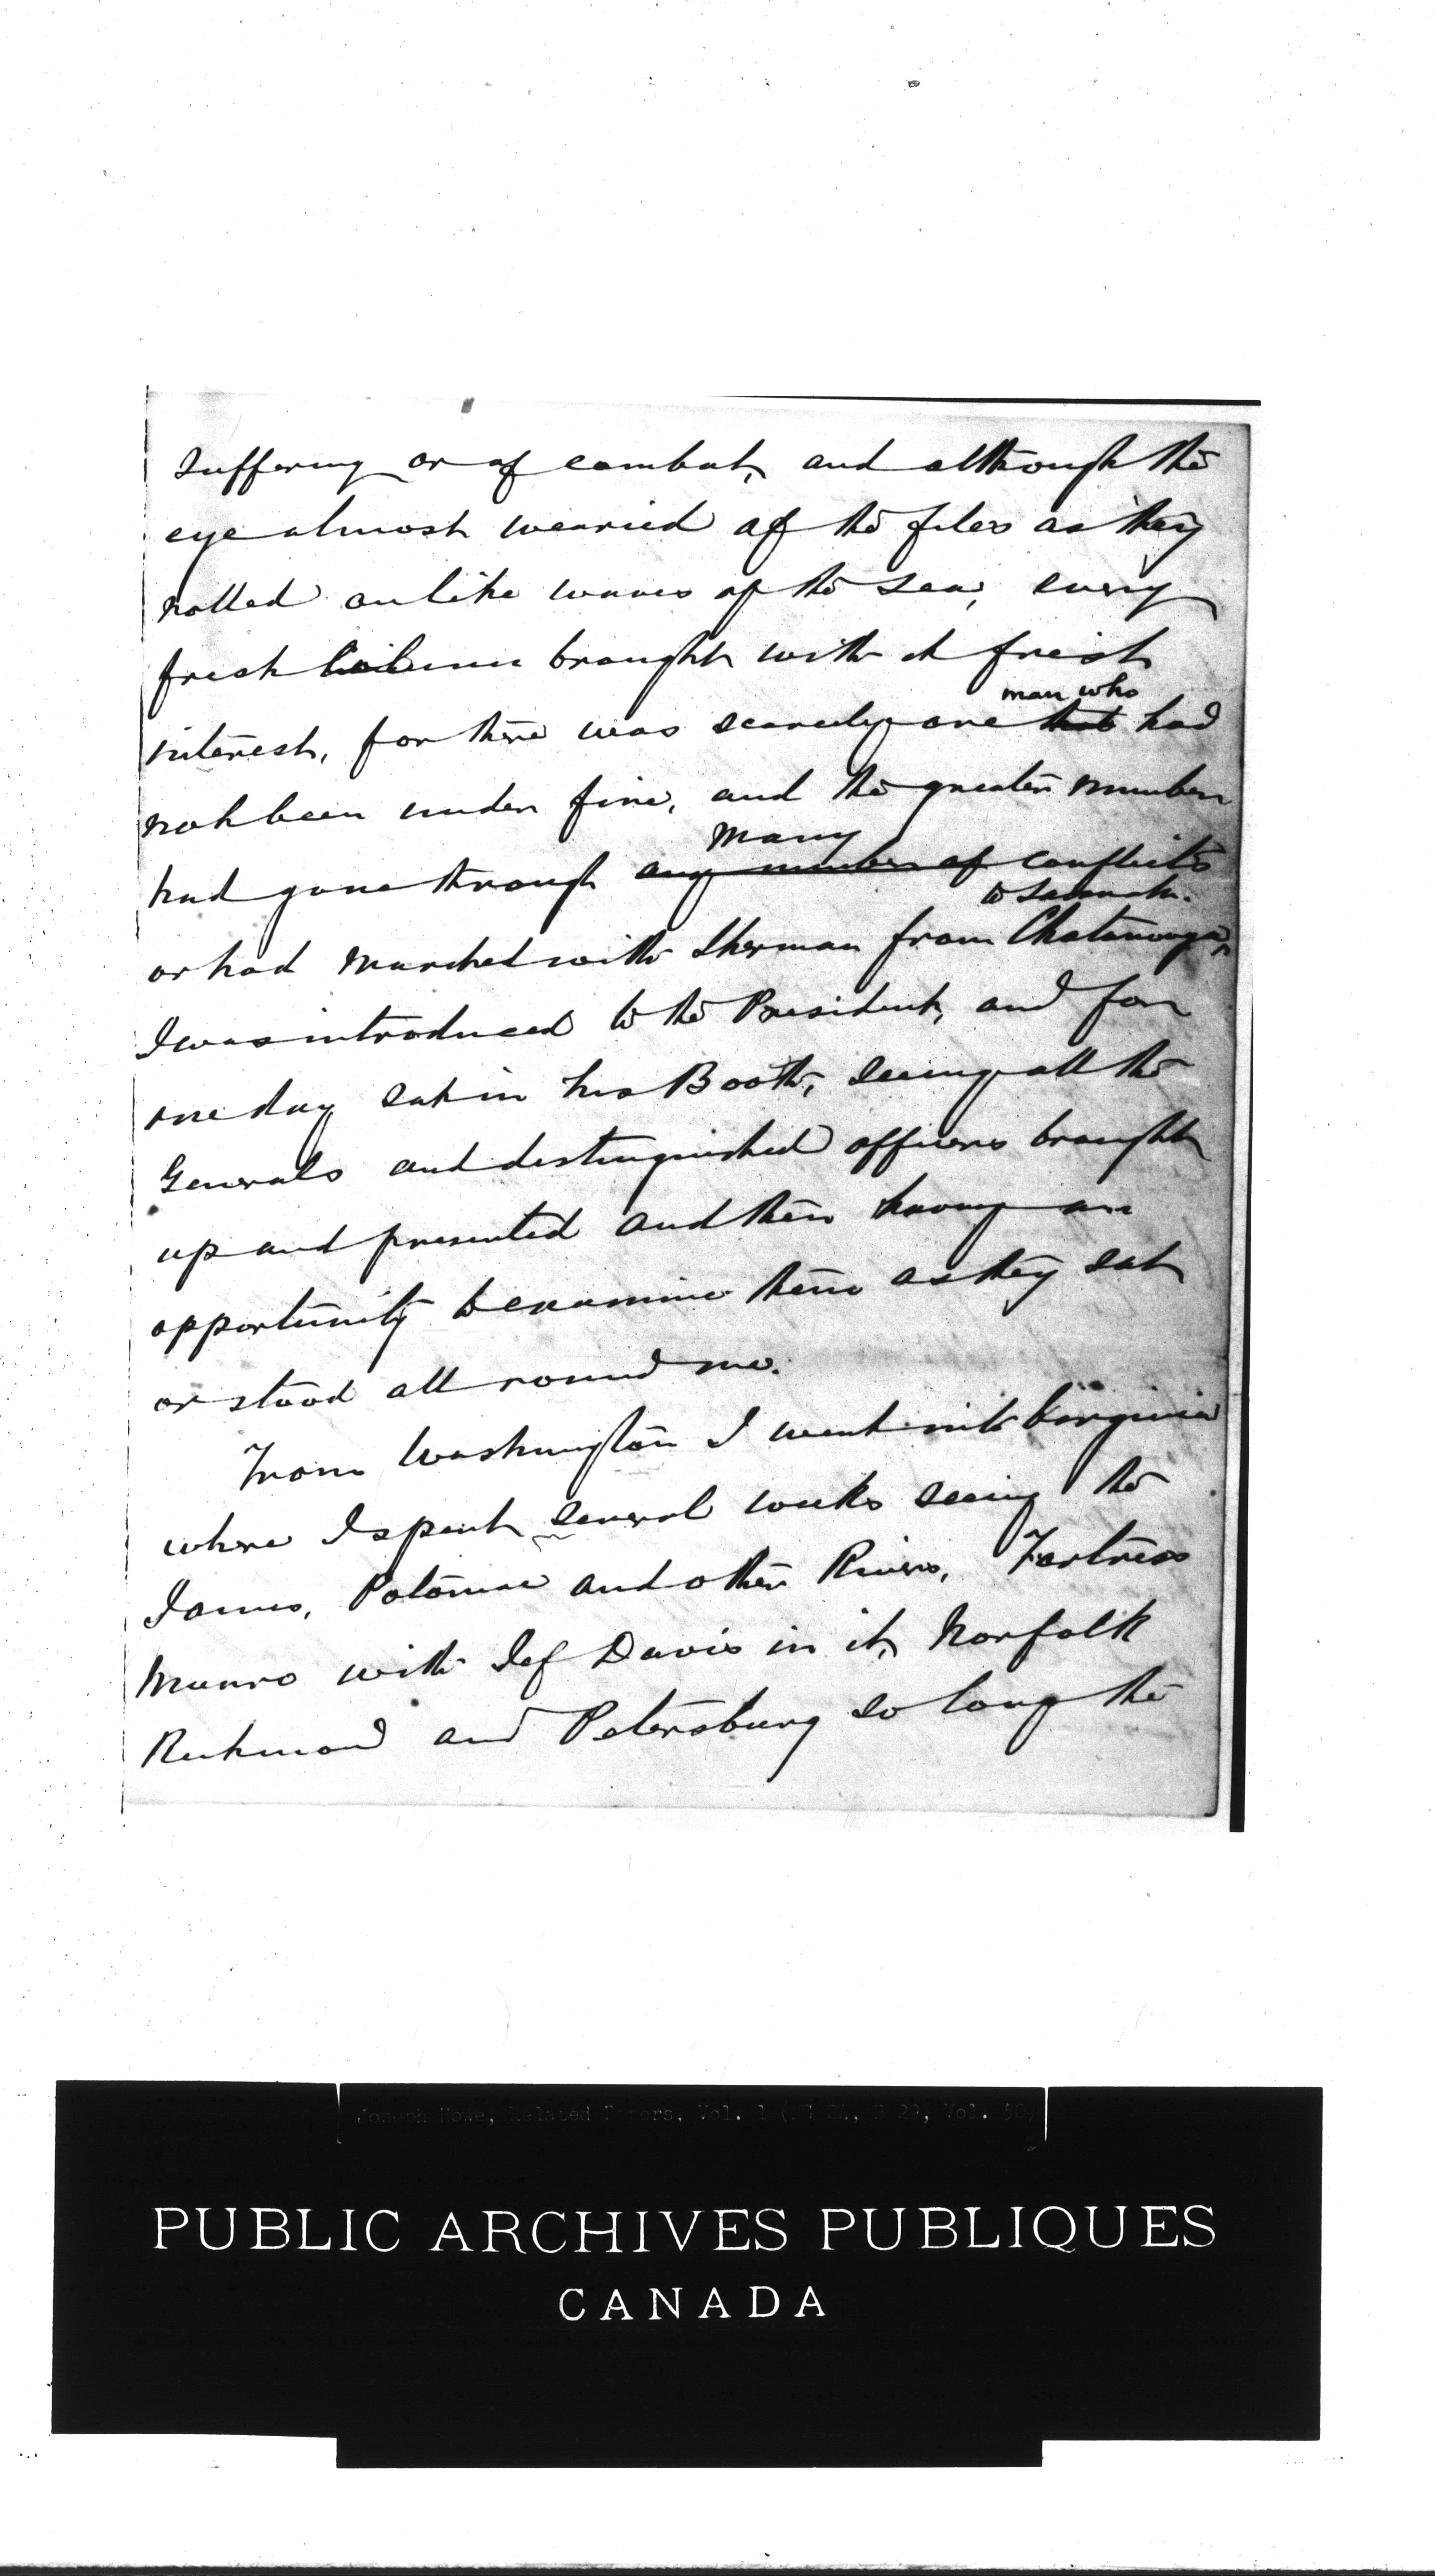 suffering or of combat, and although the
eye almost wearied of the files as they
rolled on like waves of the sea, every
fresh column brought with it fresh
man who
interest, for there was scarcely one that had
not been under fire, and the greater number
many
had gone through any number of conflicts
to Savanah.
or had marched with Sherman from Chatanooga
I was introduced to the President, and for
one day sat in his Booth, seeing all the
Generals and distinguished officers brought
up and presented and then having an
opportunity to examine them as they sat
or stood all round me.
From Washington I went into Virginia
where I spent several weeks seeing the
James, Potomac and other Rivers, Fortress
Munro with Jef Davis in it, Norfolk
Richmond and Petersburg so long the
Joseph Howe, Related Papers, Vol. 1 (MG 24, B 29, Vol. 50)
PUBLIC ARCHIVES PUBLIQUES
CANADA